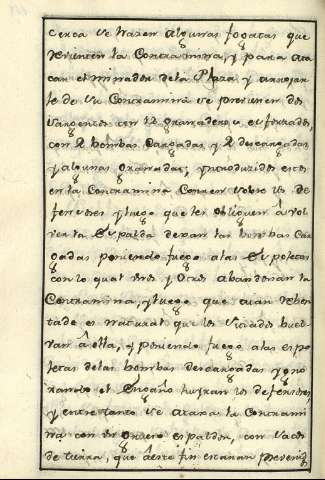 cerca se hazen algunas fogatas que
rebienten la Contramina, y para ata
car el minador de la Plaza y arrojar
le de su Contramina se previenen dos
sargentos con 12 granaderos esforzados,
con 2 bombas Cargadas y 2 descargadas
y algunas Granadas; introduzidos estos
en la Contramina Corren sobre los de
fensores y luego que les obliguen â vol
ver la Espalda dexan las bombas Car
gadas poniendo fuego a las Espoletas
con lo qual Unos y Otros abandonan la
Contramina, y luego que aian reben
tado es natural que los Sitiados buel
van â ella, y poniendo fuego a las espo
letas de las bombas descargadas y igno
rando el Engaño huiran los defensores,
y entre tanto se Ataca la Contrami
na con Un Grueso espaldon, con sacos
de tierra, que âeste fin estaran preveni